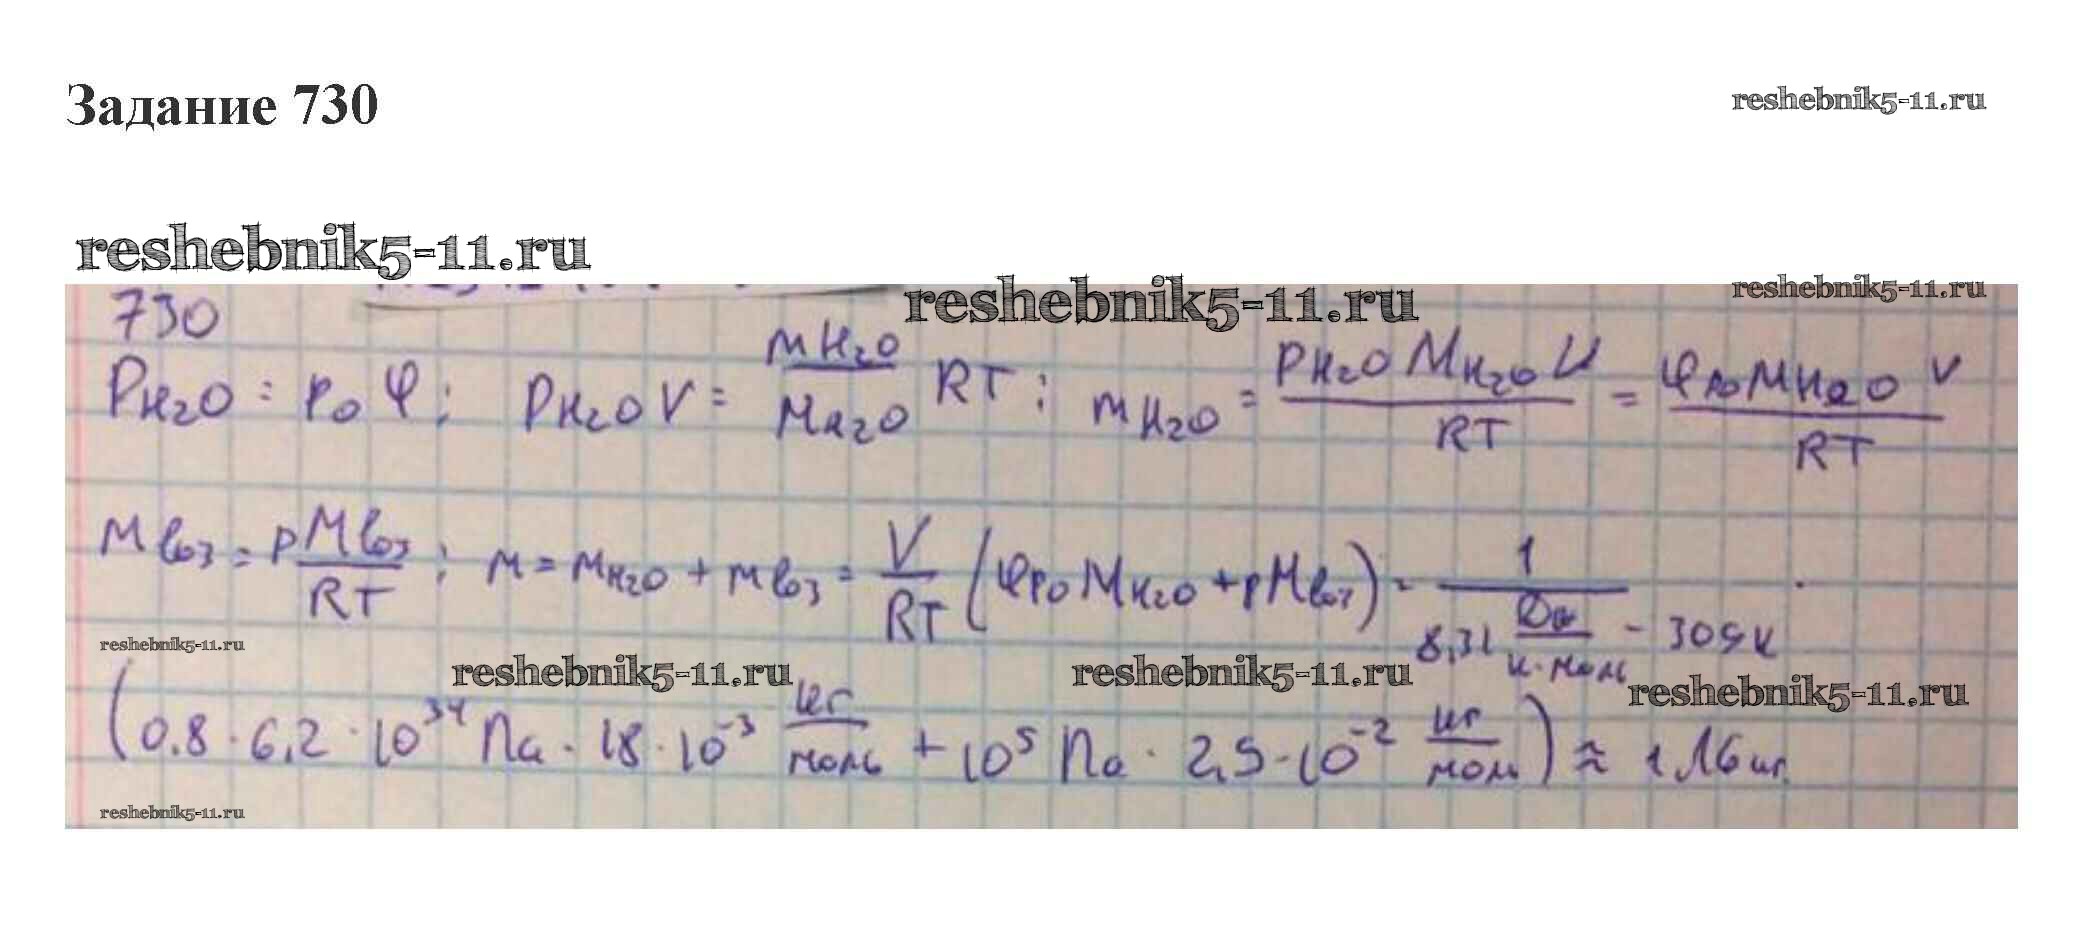 Задание 730
reshebnik5-11.ru
reshebnik5-11.ru
reshebnik5-11.ru
reshebnik5-11.ru
730
PH2O = p0 φ; PH2O V = mH2O/MH2O RT; mH2O = PH2O MH2O V / RT = φ p0 MH2O V / RT
mвоз = p Mвоз / RT; m = mH2O + mвоз = V/RT (φ p0 MH2O + p Mвоз) = 1 / 8,31 Дж/К·моль - 309К ·
reshebnik5-11.ru
reshebnik5-11.ru
reshebnik5-11.ru
reshebnik5-11.ru
(0,8 · 6,2 · 10^34 Па · 18 · 10^-3 кг/моль + 10^5 Па · 2,9 · 10^-2 кг/моль) ≈ 1,16 кг.
reshebnik5-11.ru